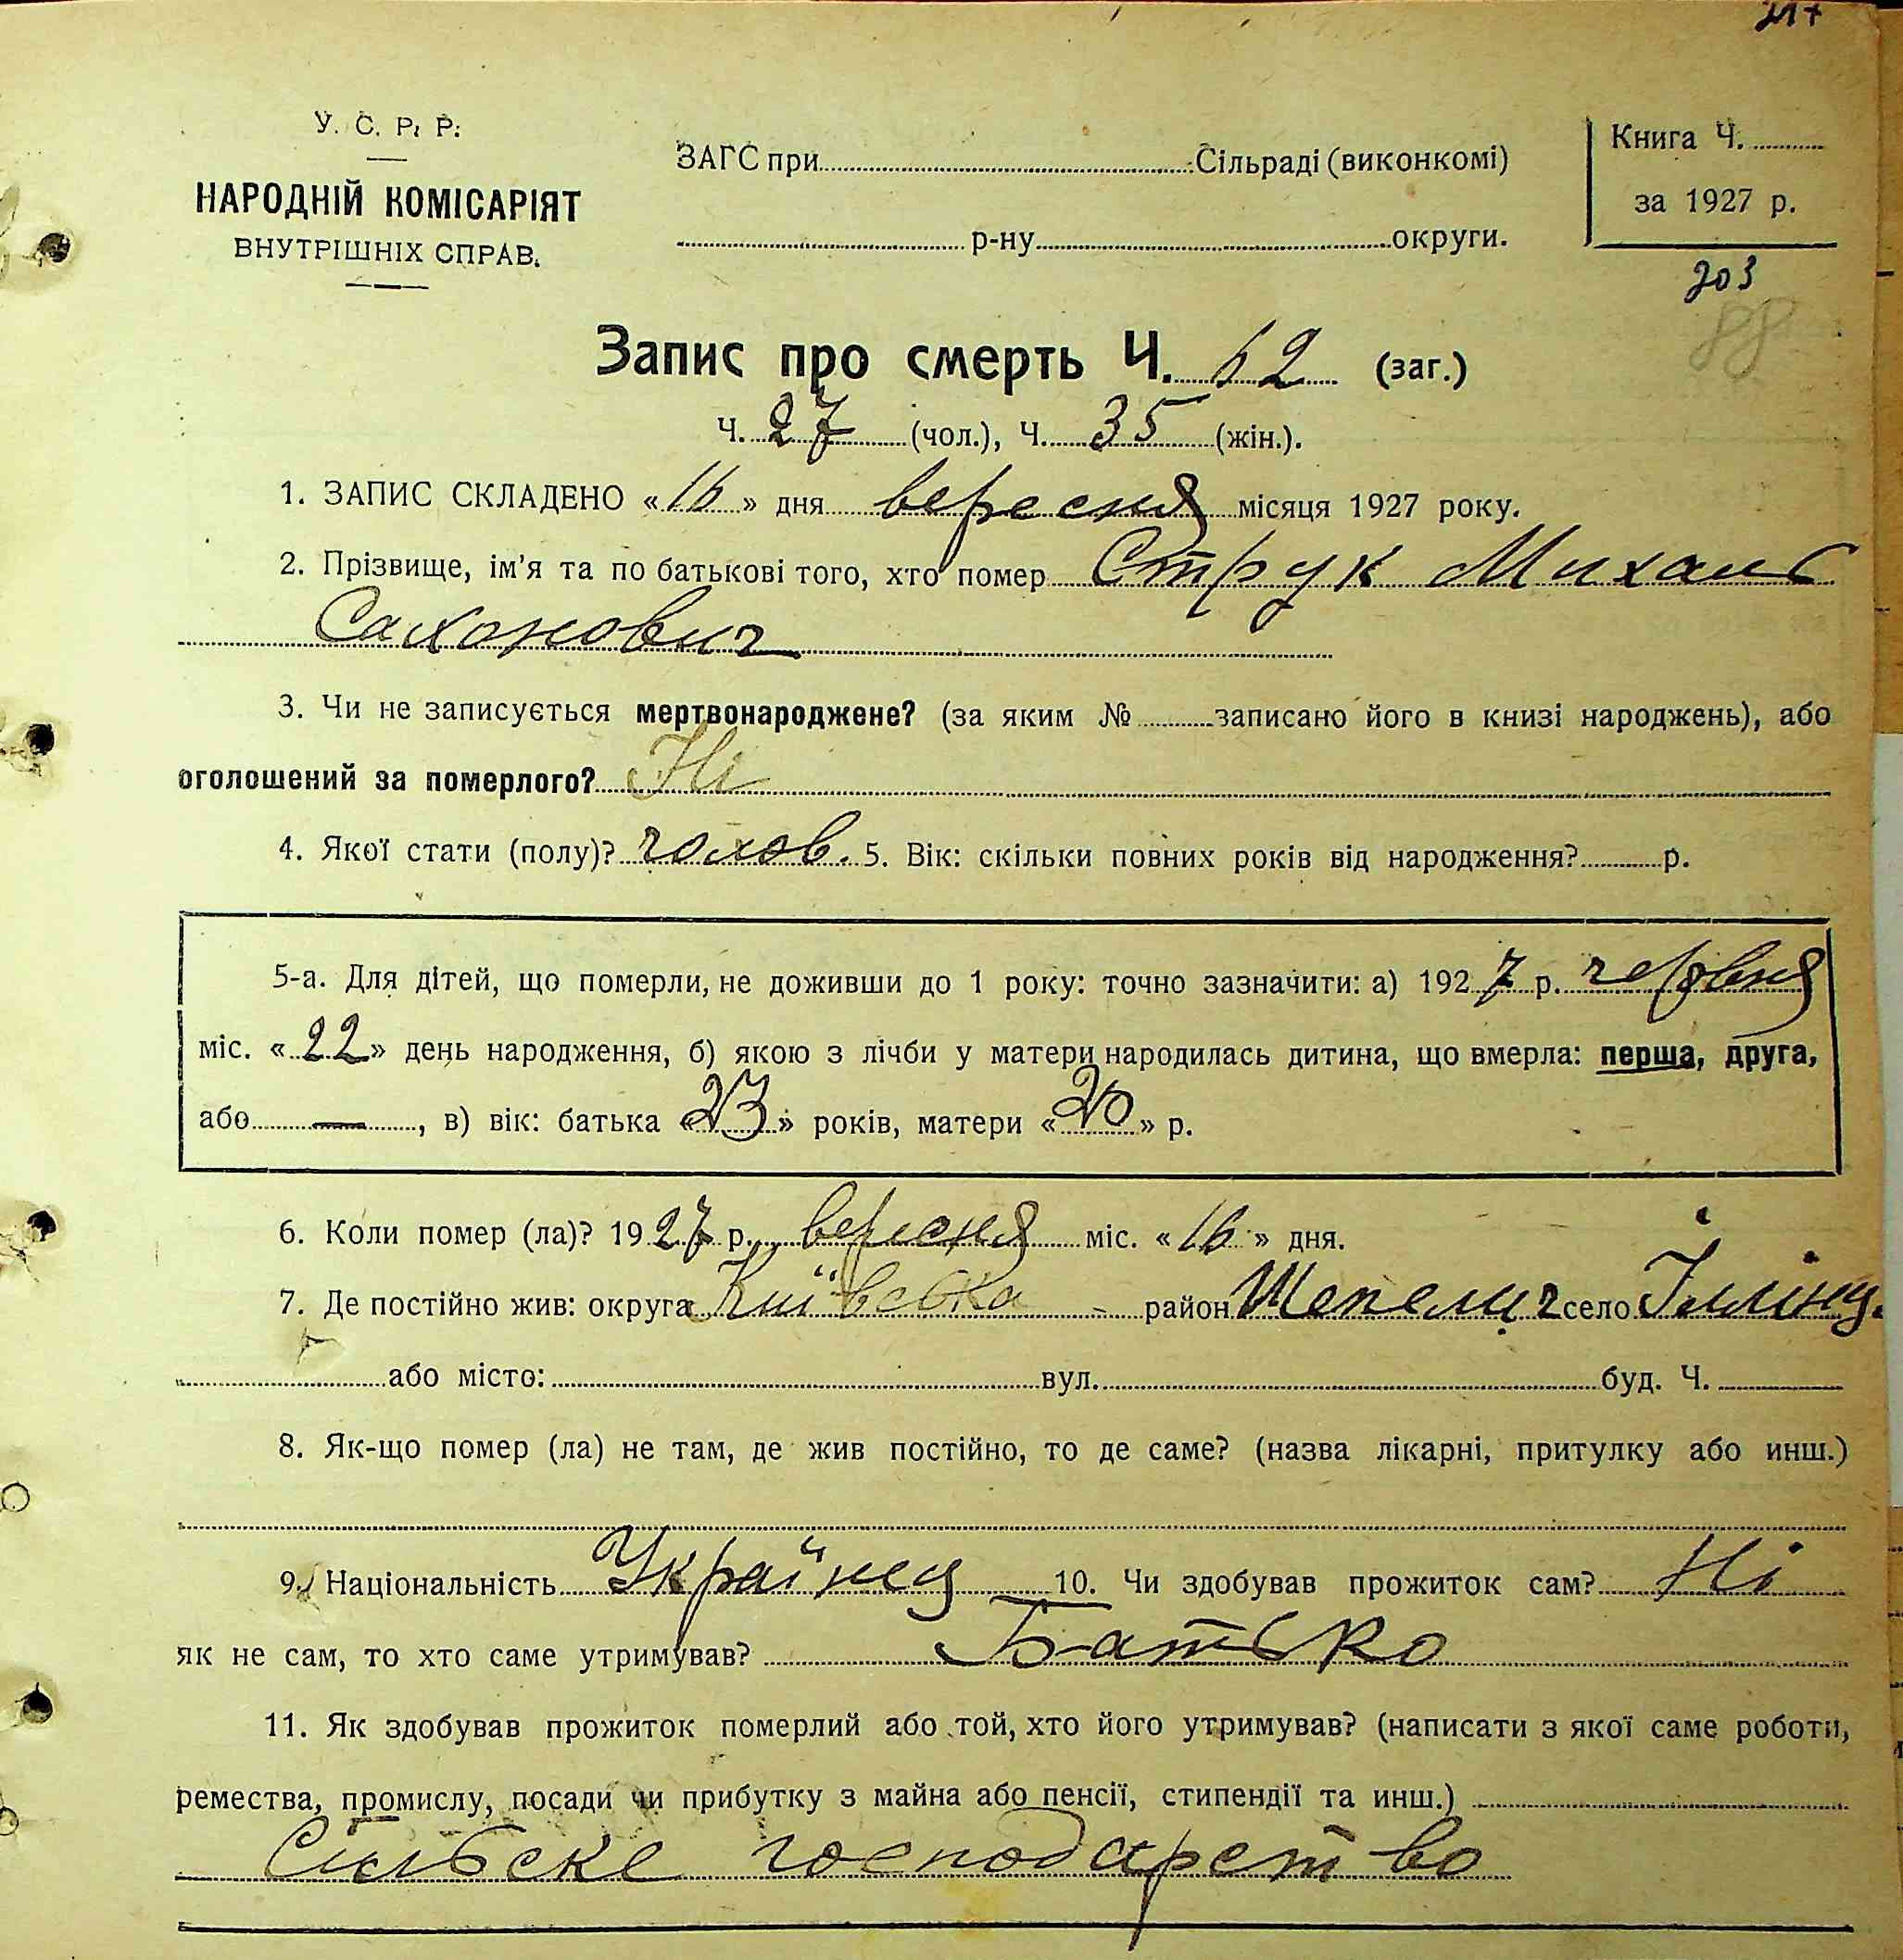 217
У. С. Р. Р.
НАРОДНІЙ КОМІСАРІЯТ
ВНУТРІШНІХ СПРАВ.
ЗАГС при Сільраді (виконкомі)
р-ну округи.
Книга Ч.
за 1927 р.
203
88
Запис про смерть Ч. 62 (заг.)
Ч. 27 (чол.), Ч. 35 (жін.).
1. ЗАПИС СКЛАДЕНО «16» дня вересня місяця 1927 року.
2. Прізвище, ім'я та по батькові того, хто помер Струк Михаль
Сахонович
3. Чи не записується мертвонароджене? (за яким № записано його в книзі народжень), або
оголошений за померлого? Ні
4. Якої стати (полу)? чолов. 5. Вік: скільки повних років від народження? р.
5-а. Для дітей, що померли, не доживши до 1 року: точно зазначити: а) 1927 р. червня
міс. «22» день народження, б) якою з лічби у матери народилась дитина, що вмерла: перша, друга,
або —, в) вік: батька «23» років, матери «20» р.
6. Коли помер (ла)? 1927 р. вересня міс. «16» дня.
7. Де постійно жив: округа Київська район Шепелич село Іллінц.
або місто: вул. буд. Ч.
8. Як-що помер (ла) не там, де жив постійно, то де саме? (назва лікарні, притулку або инш.)
9. Національність Українец 10. Чи здобував прожиток сам? Ні
як не сам, то хто саме утримував? Батько
11. Як здобував прожиток померлий або той, хто його утримував? (написати з якої саме роботи,
ремества, промислу, посади чи прибутку з майна або пенсії, стипендії та инш.)
Сильске господарство